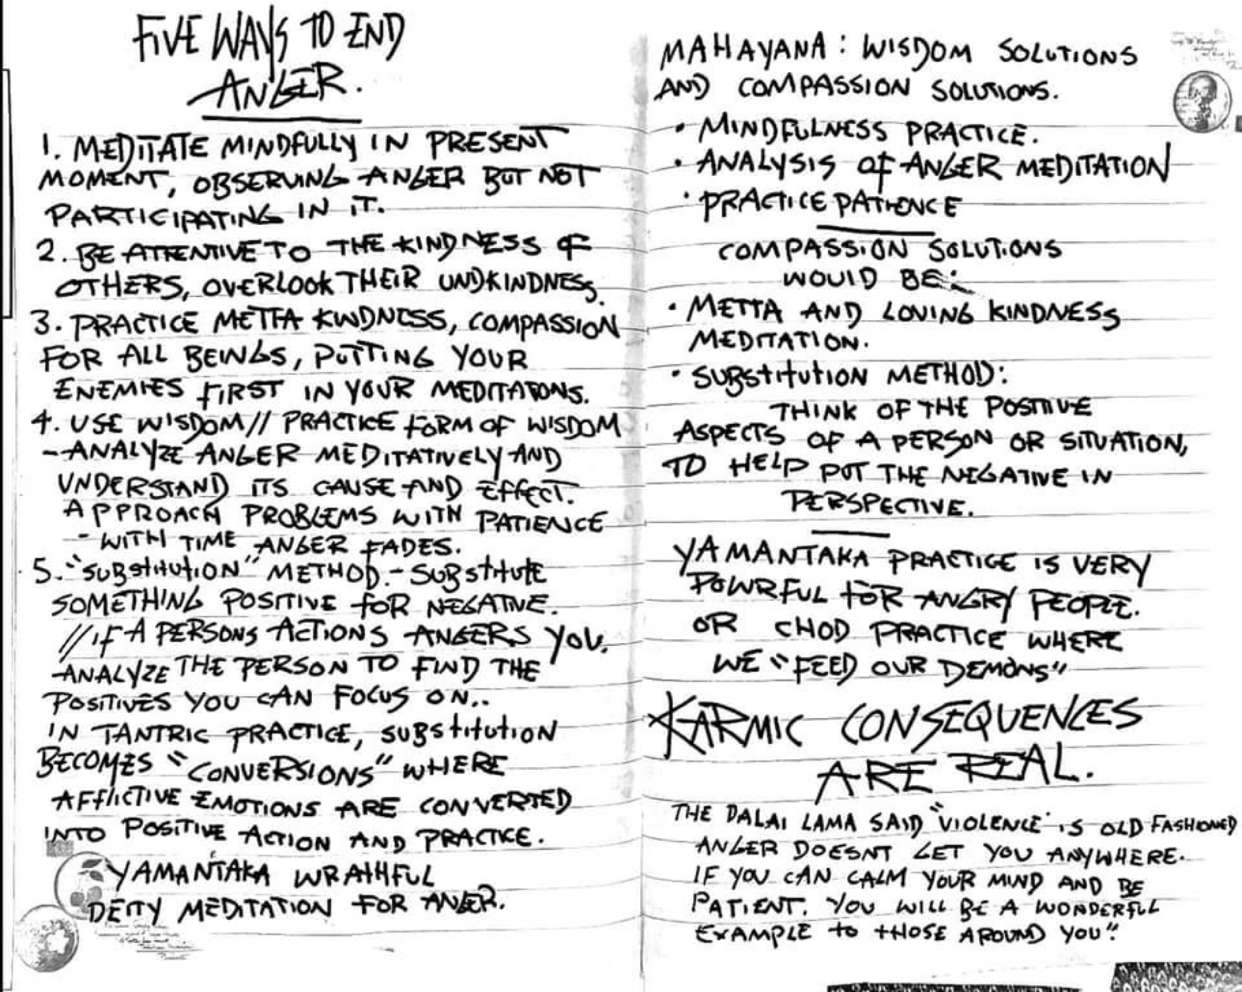 FIVE WAYS TO END
ANGER.
1. MEDITATE MINDFULLY IN PRESENT
MOMENT, OBSERVING ANGER BUT NOT
PARTICIPATING IN IT.
2. BE ATTENTIVE TO THE KINDNESS OF
OTHERS, OVERLOOK THEIR UNDKINDNESS.
3. PRACTICE METTA KINDNESS, COMPASSION
FOR ALL BEINGS, PUTTING YOUR
ENEMIES FIRST IN YOUR MEDITATONS.
4. USE WISDOM // PRACTICE FORM OF WISDOM
- ANALYZE ANGER MEDITATIVELY AND
UNDERSTAND ITS CAUSE AND EFFECT.
APPROACH PROBLEMS WITH PATIENCE
- WITH TIME ANGER FADES.
5. "SUBSTITUTION" METHOD. - SUBSTITUTE
SOMETHING POSITIVE FOR NEGATIVE.
// IF A PERSONS ACTIONS ANGERS YOU.
ANALYZE THE PERSON TO FIND THE
POSITIVES YOU CAN FOCUS ON..
IN TANTRIC PRACTICE, SUBSTITUTION
BECOMES "CONVERSIONS" WHERE
AFFLICTIVE EMOTIONS ARE CONVERTED
INTO POSITIVE ACTION AND PRACTICE.
YAMANTAKA WRATHFUL
DEITY MEDITATION FOR ANGER.
MAHAYANA: WISDOM SOLUTIONS
AND COMPASSION SOLUTIONS.
• MINDFULNESS PRACTICE.
• ANALYSIS OF ANGER MEDITATION
• PRACTICE PATIENCE
COMPASSION SOLUTIONS
WOULD BE:
• METTA AND LOVING KINDNESS
MEDITATION.
• SUBSTITUTION METHOD:
THINK OF THE POSITIVE
ASPECTS OF A PERSON OR SITUATION,
TO HELP PUT THE NEGATIVE IN
PERSPECTIVE.
YAMANTAKA PRACTICE IS VERY
POWRFUL FOR ANGRY PEOPLE.
OR CHOD PRACTICE WHERE
WE "FEED OUR DEMONS"
*KARMIC CONSEQUENCES
ARE REAL.
THE DALAI LAMA SAID "VIOLENCE IS OLD FASHIONED
ANGER DOESNT GET YOU ANYWHERE.
IF YOU CAN CALM YOUR MIND AND BE
PATIENT. YOU WILL BE A WONDERFUL
EXAMPLE TO THOSE AROUND YOU".